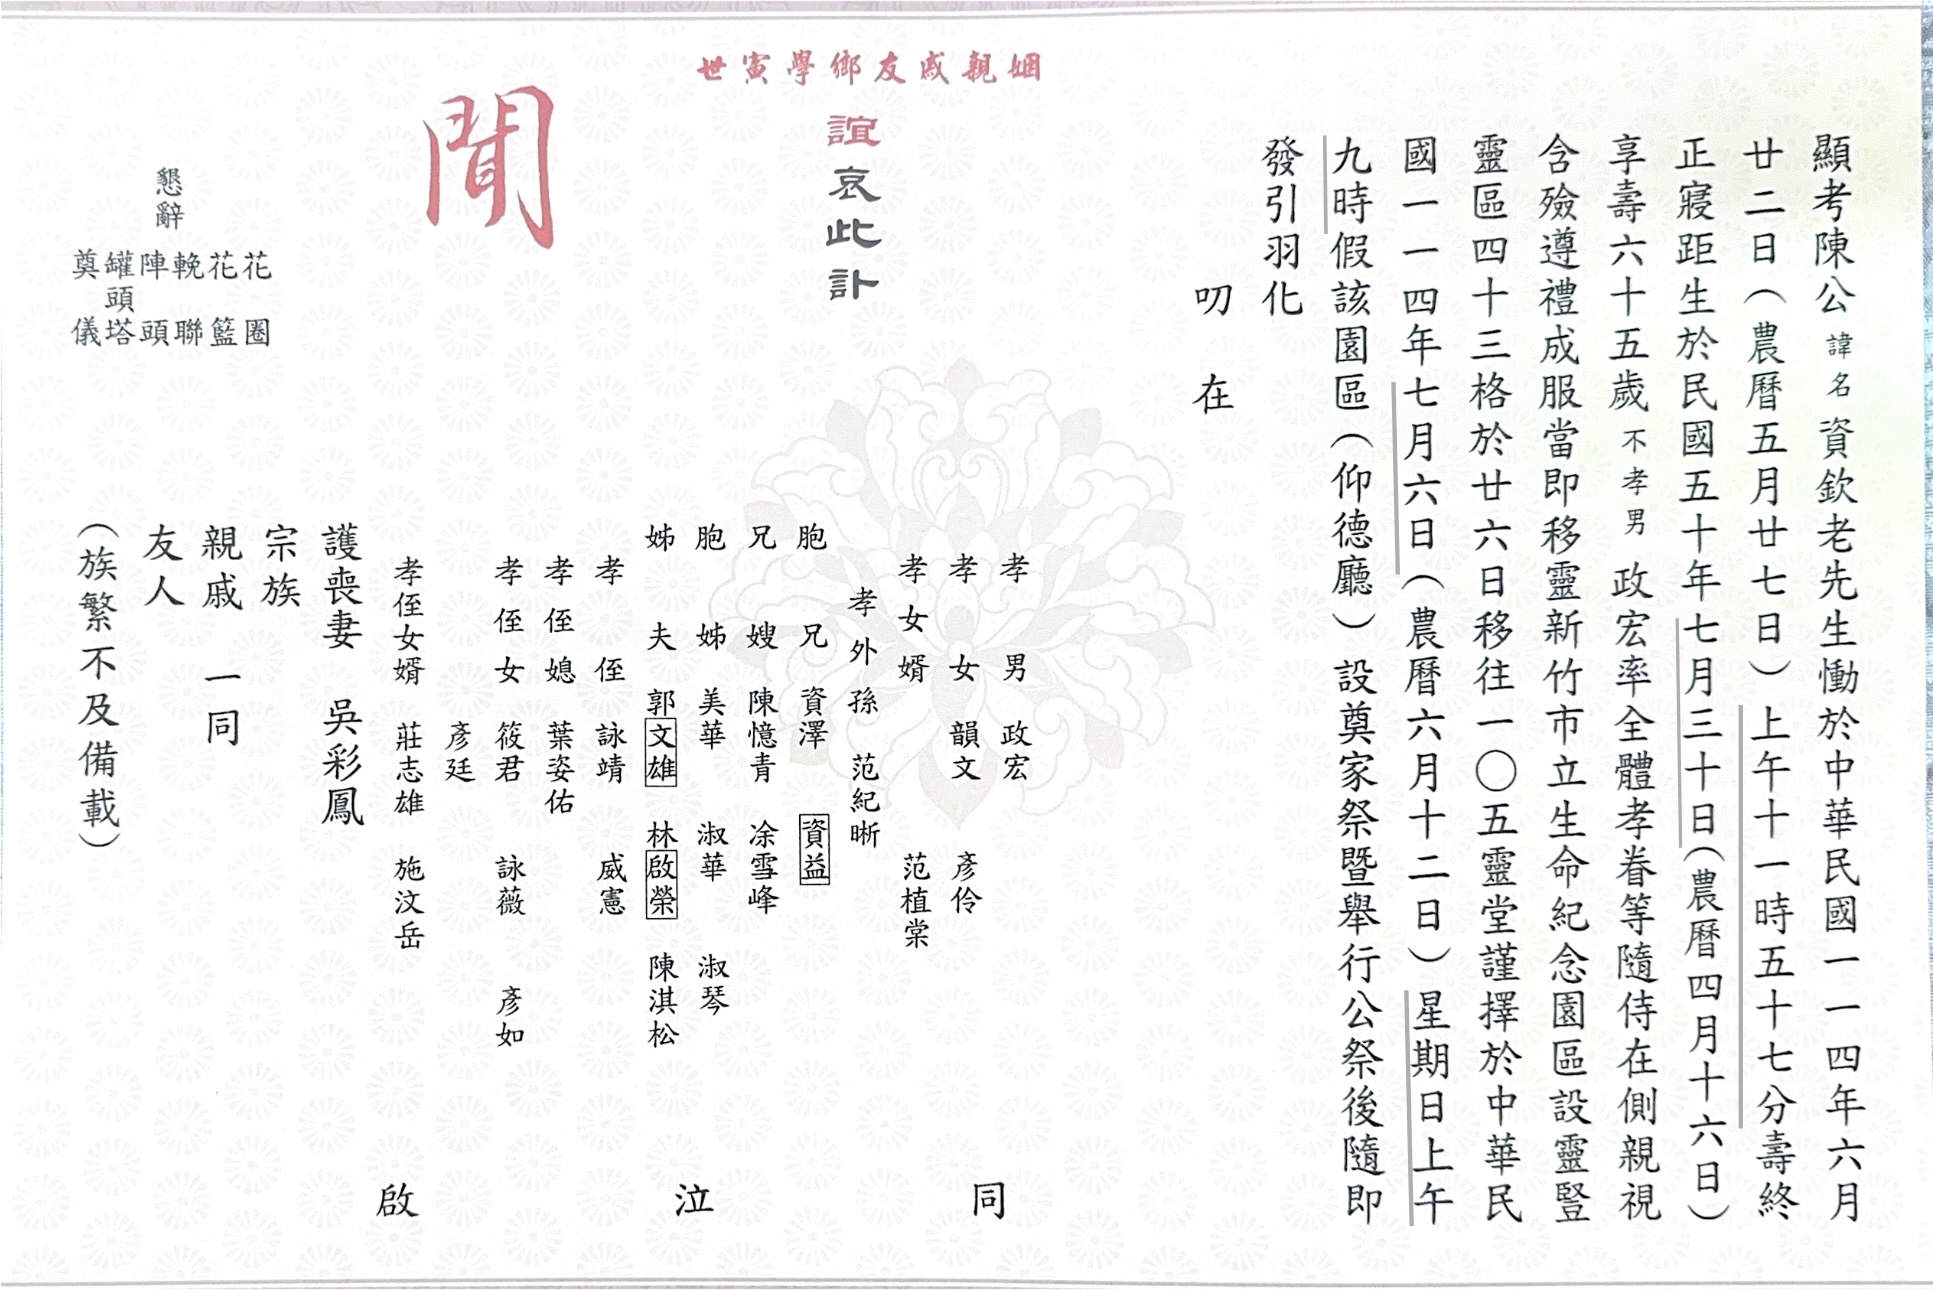 顯考陳公諱名資欽老先生慟於中華民國一一四年六月
廿二日（農曆五月廿七日）上午十一時五十七分壽終
正寢距生於民國五十年七月三十日（農曆四月十六日）
享壽六十五歲不孝男政宏率全體孝眷等隨侍在側親視
含殮遵禮成服當即移靈新竹市立生命紀念園區設靈豎
靈區四十三格於廿六日移往一〇五靈堂謹擇於中華民
國一一四年七月六日（農曆六月十二日）星期日上午
九時假該園區（仰德廳）設奠家祭暨舉行公祭後隨即
發引羽化
叨在
姻親戚友鄉學寅世
誼哀此訃
聞
孝男 政宏
孝女 韻文 彥伶
孝女婿 范植棠
孝外孫 范紀晰
胞兄 資澤 資益
兄嫂 陳憶青 凃雪峰
胞姊 美華 淑華 淑琴
姊夫 郭文雄 林啟榮 陳淇松
孝侄 詠靖 威憲
孝侄媳 葉姿佑
孝侄女 筱君 詠薇 彥如
彥廷
孝侄女婿 莊志雄 施汶岳
護喪妻 吳彩鳳
宗族
親戚 一同
友人
（族繁不及備載）
同泣啟
懇辭
花圈
花籃
輓聯
陣頭
罐頭塔
奠儀